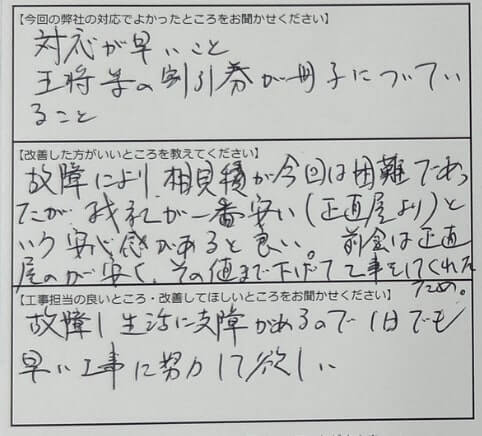 【今回の弊社の対応でよかったところをお聞かせください】
対応が早いこと
王将等の割引券が冊子についてい
ること
【改善した方がいいところを教えてください】
故障により相見積が今回は困難であっ
たが、残社が一番安い(正直屋より)と
いう安心感があると良い。前会は正直
屋のが安く、その値まで下げて工事をしてくれた
ため。
【工事担当の良いところ・改善してほしいところをお聞かせください】
故障し生活に支障があるので1日でも
早い工事に努力して欲しい